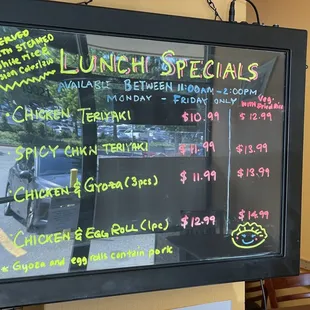 SERVED
WITH STEAMED
White Rice &
Asian Coleslaw
LUNCH SPECIALS
AVAILABLE BETWEEN 11:00AM-2:00PM
MONDAY - FRIDAY ONLY
Veg.
With Fried Rice
• CHICKEN TERIYAKI $10.99 $12.99
SPICY CHKN TERIYAKI $11.99 $13.99
• CHICKEN & GYOZA (3pcs) $11.99 $13.99
• CHICKEN & EGG ROLL (1pc) $12.99 $14.99
* Gyoza and egg rolls contain pork